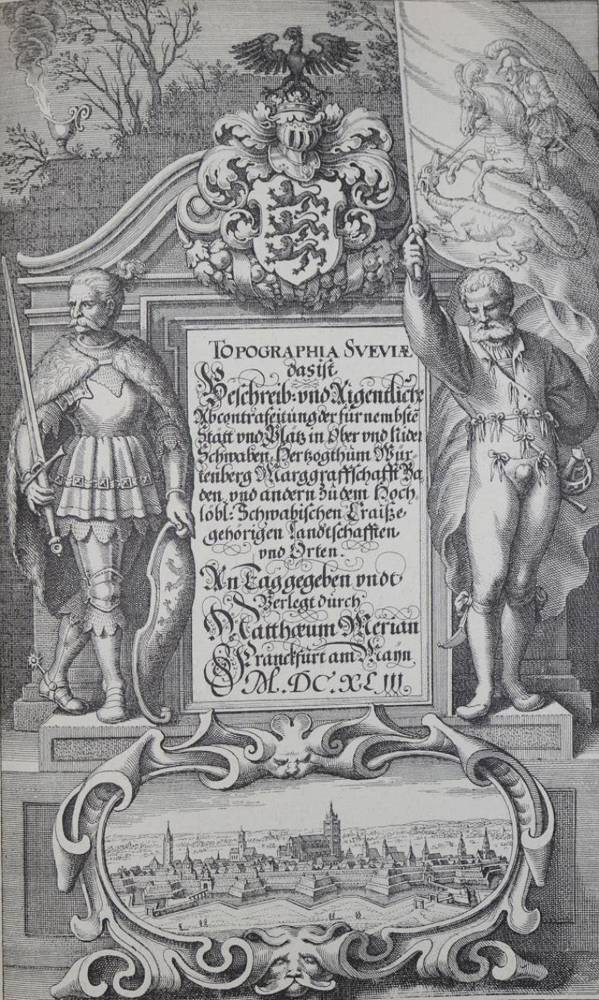 TOPOGRAPHIA SVEVIÆ
das ist
Beschreib: vnd Aigentliche
Abcontrafeitung der fürnembstē
Stätt vnd Plätz in Ober vnd Nider
Schwaben, Hertzogthum Wür¬
tenberg Marggraffschafft Ba
den, vnd andern zu dem Hoch,
löbl: Schwabischen Craiße
gehörigen Landtschafften
vnd Orten.
An Tag gegeben vndt
Verlegt durch
Matthæum Merian
Franckfurt am Mayn
M.DC.XLIII